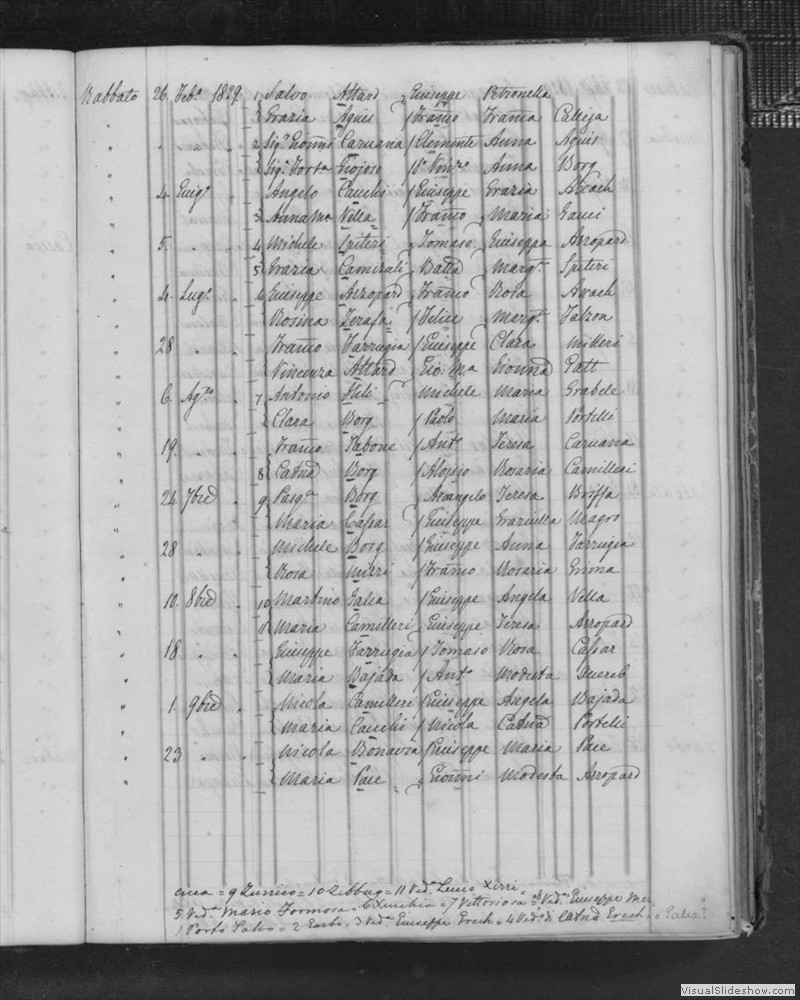 Rabbato 26. Feb.o 1829. 1 Salvo Attard Giuseppe Petronella
Grazia Agius Franco Franca Calleja
" " " 2 Sig.r Gionni Caruana Clemente Anna Agius
Sig.a Fort.a Giojoso Anna Borg
4 Giug.o Angelo Cauchi Giuseppe Grazia
3 Vella Franco Maria Gauci
5. " " 4 Michele Spiteri Tomaso Giuseppa Azzopard
5 Grazia Batta Marg.a Spiteri
4. Lug.o " 6 Giuseppe Azzopard Franco Rosa
Rosina Zerafa Felice Marg.a Falzon
28 " " Franco Farrugia Giuseppe Clara
Vincenza Attard Gio: Ma Gionna Gatt
6. Ag.to " 7 Antonio Michele Maria
Clara Borg Paolo Maria Portelli
19. " " Franco Tabone Ant.o Teresa Caruana
8 Catna Borg Aloysio Rosaria Camilleri
24 7bre " 9 Pasq.e Borg Arcangelo Teresa Briffa
Maria Cassar Giuseppe Graziella Magro
28 " " Michele Borg Giuseppe Anna Farrugia
Rosa Franco Rosaria Grima
10. 8bre " 10 Martino Galea Giuseppe Angela Vella
11 Maria Camilleri Giuseppe Teresa Azzopard
18 " " Giuseppe Farrugia Tomaso Rosa Cassar
Maria Bajada Ant.o Modesta
1. 9bre " Nicola Camilleri Giuseppe Angela Bajada
Maria Cauchi Nicola Catna Portelli
23 " " Nicola Giuseppe Maria Pace
Maria Pace Gionni Modesta Azzopard
= 9 Zurrico = 10 Zebbug = 11 Ved.a Xirri
5 Ved.a Mario Formosa = 6 = 7 Vittoriosa = 8 Ved.a Giuseppe
1 Porto Salvo = 2 = 3 Ved.a Giuseppe = 4 Ved.a di Catna
VisualSlideshow.com